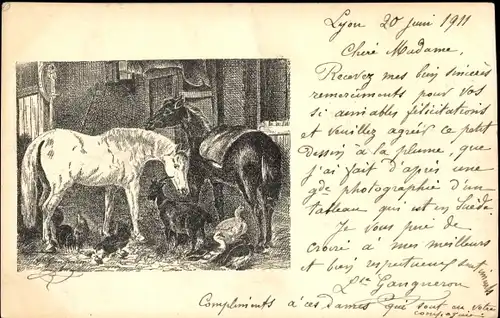 Lyon 20 juin 1911
Chère Madame,
Recevez mes bien sincères
remerciments pour vos
si aimables félicitations
et veuillez agréer ce petit
dessin à la plume, que
j'ai fait d'après une
gde photographie d'un
tableau qui est en Suède
Je vous prie de
croire à mes meilleurs
et bien respectueux sentiments
Compliments à ces dames qui sont en votre
compagnie.